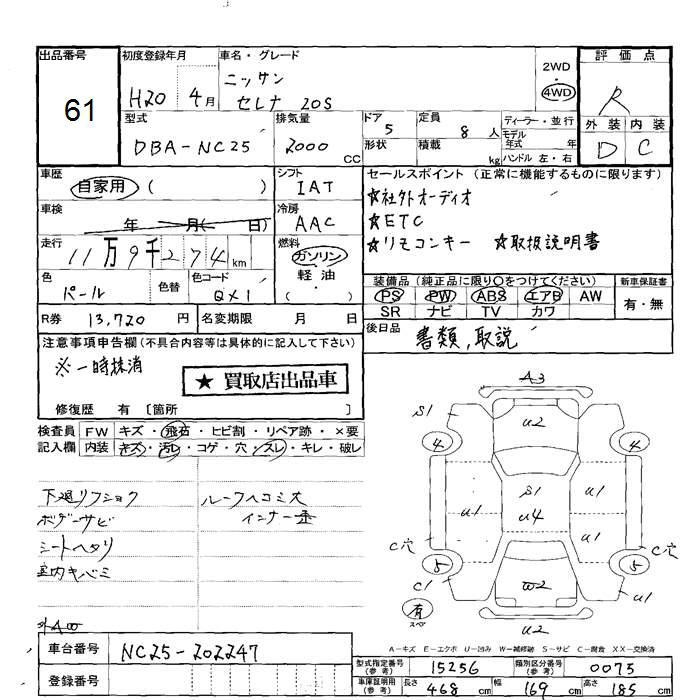 出品番号 初度登録年月 車名・グレード 2WD 評価点
61 H20 4月 ニッサン 4WD R
セレナ 20S 外装 内装
D C
型式 排気量 ドア 定員 ディーラー・並行
DBA-NC25 2000 CC 5 8人 モデル年式 年
形状 積載 kg ハンドル 左・右
車歴 シフト セールスポイント (正常に機能するものに限ります)
自家用 ( ) IAT ☆社外オーディオ
車検 冷房 ☆ETC
年 月( 日) AAC ☆リモコンキー ☆取扱説明書
走行 燃料
11万9千274km ガソリン
軽油
( )
色 色替 色コード 装備品 (純正品に限り○をつけてください) 新車保証書
パール QX1 PS PW ABS エアB AW 有・無
SR ナビ TV カワ
R券 13,720円 名変期限 月 日 後日品
書類,取説
注意事項申告欄(不具合内容等は具体的に記入して下さい)
※一時抹消
★ 買取店出品車
修復歴 有 [箇所 ]
検査員 FW キズ・飛石・ヒビ割・リペア跡・×要
記入欄 内装 キズ・汚レ・コゲ・穴・スレ・キレ・破レ
下廻リフショク ルーフヘコミ大
ボデーサビ
シートヘタリ
室内キバミ
A3
S1 U2
4 4
S1
U1 U4 U1 U1
C穴 C穴
5 5
C1 W2 U1
有
スペア
U2
A-キズ E-エクボ U-凹み W-補修跡 S-サビ C-腐食 XX-交換済
車台番号 NC25-202247
登録番号
型式指定番号(参考) 15256 類別区分番号(参考) 0075
車庫証明用(参考) 長さ 468cm 幅 169cm 高さ 185cm